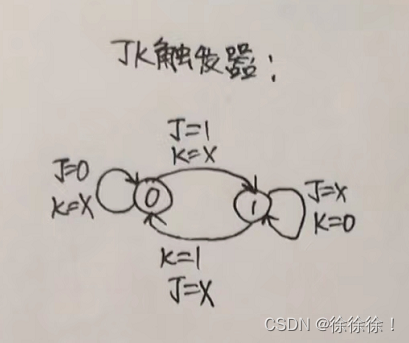 JK触发器:
J=1
K=X
J=0
K=X
0
1
J=X
K=0
K=1
J=X
CSDN @徐徐徐！